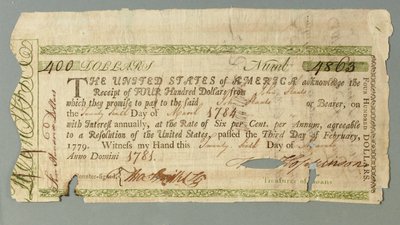 400 DOLLARS Numb. 4863
THE UNITED STATES of AMERICA acknowledge the
Receipt of FOUR Hundred Dollars from John
which they promise to pay to the said John or Bearer, on
the Day of March 1784
with Interest annually, at the Rate of Six per Cent. per Annum, agreeable
to a Resolution of the United States, passed the Third Day of February,
1779. Witness my Hand this Twenty Day of
Anno Domini 1781.
F Hopkinson
Counter-signed, Treasurer of Loans
FOUR HUNDRED DOLLARS.
Four Hundred Dollars